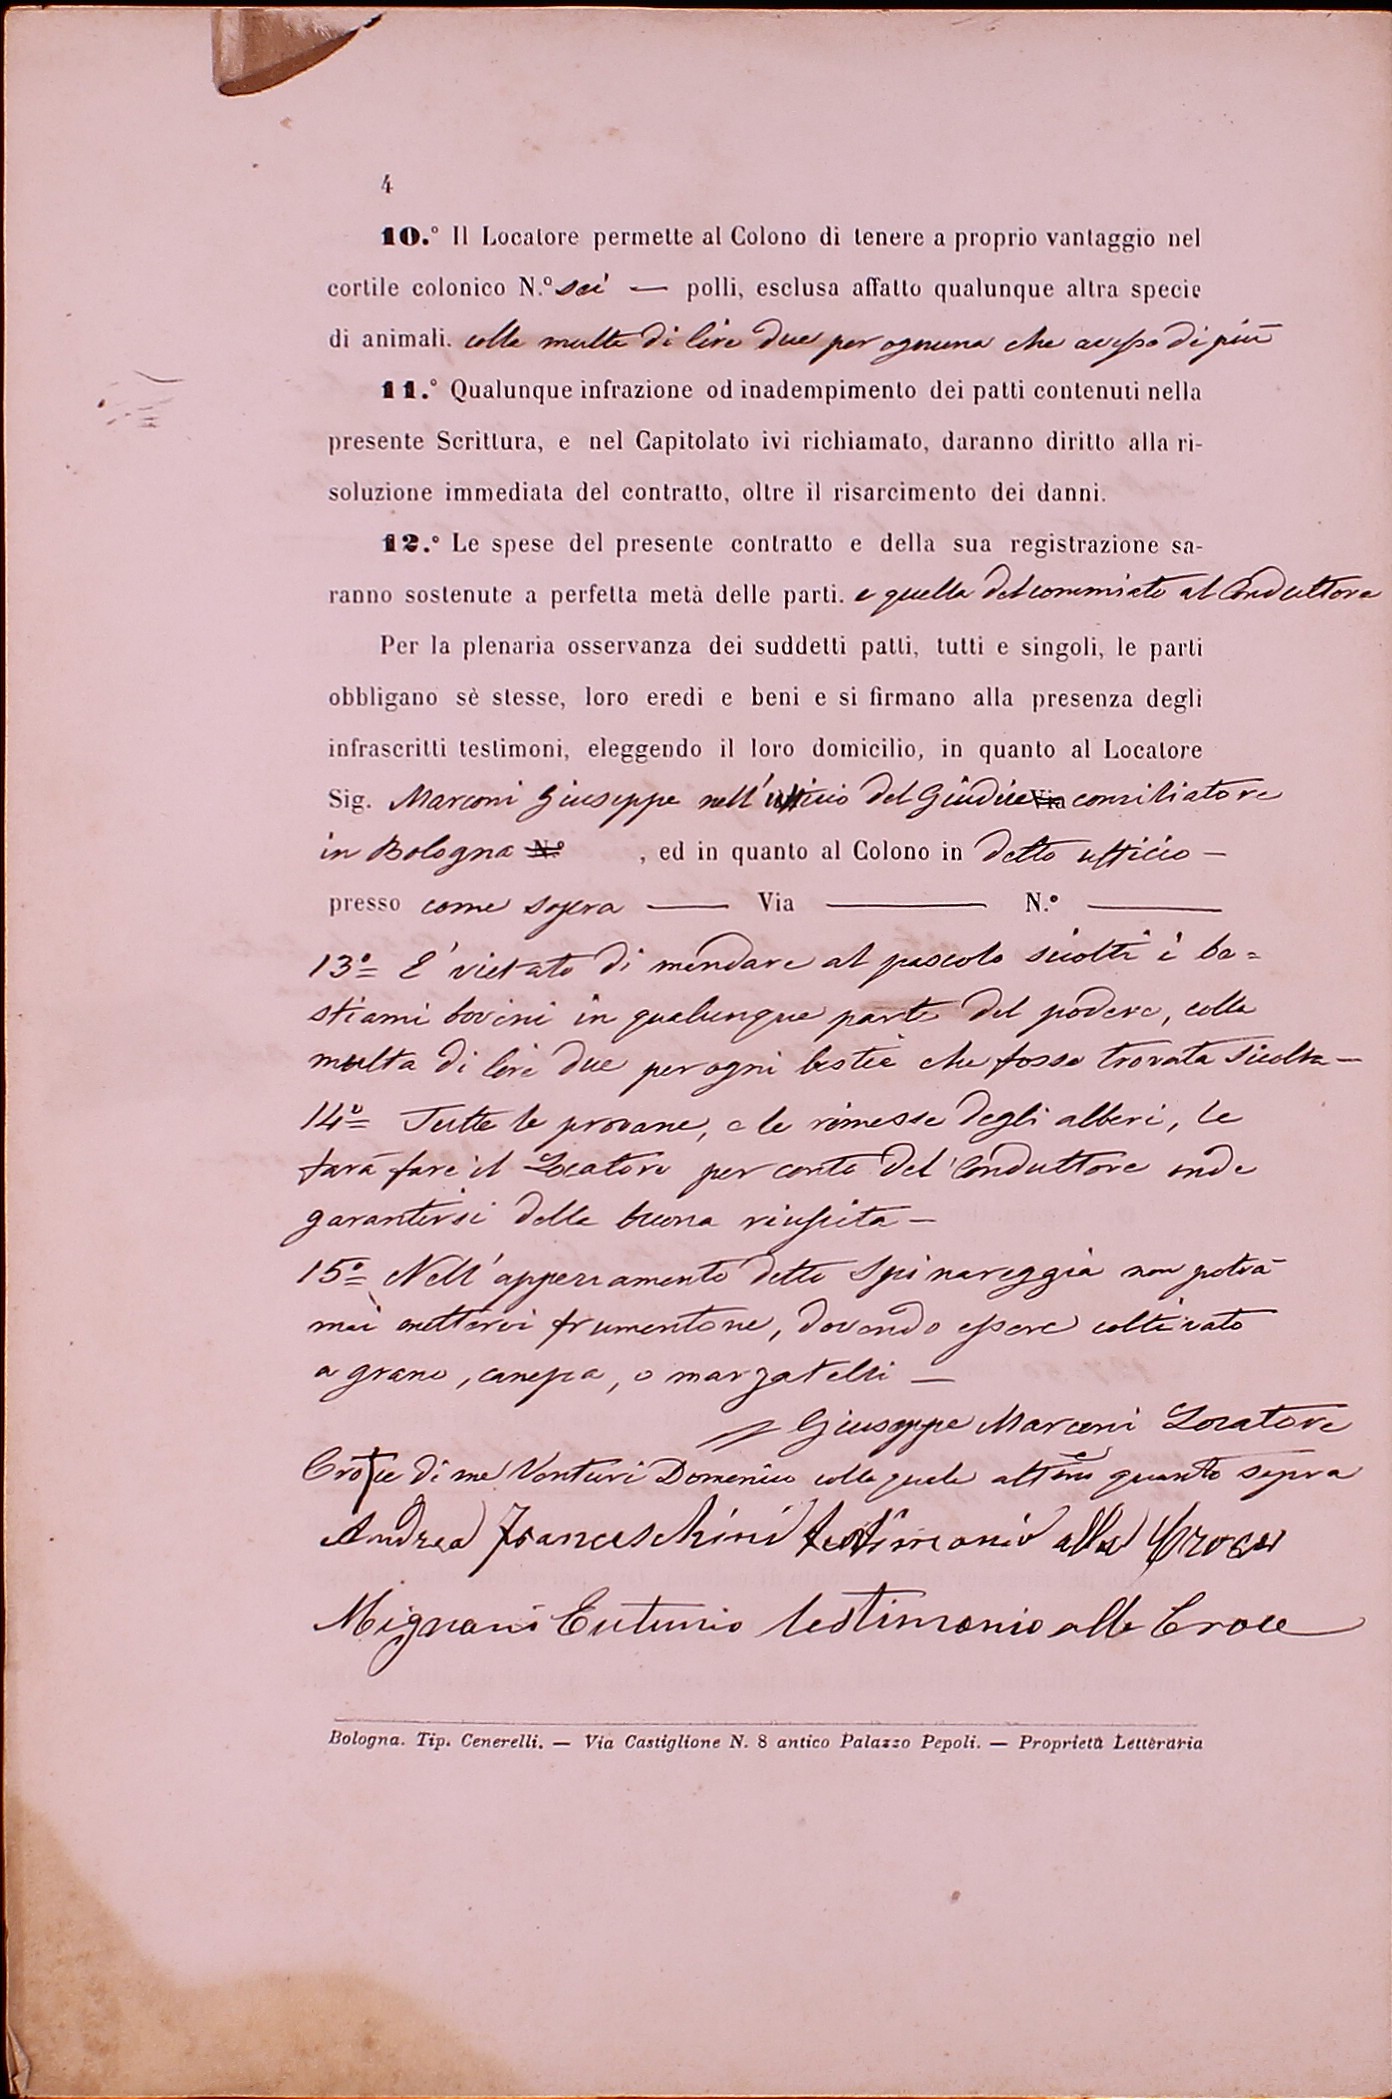 4
10.° Il Locatore permette al Colono di tenere a proprio vantaggio nel
cortile colonico N.° sei — polli, esclusa affatto qualunque altra specie
di animali. colla multa di lire due per ognuna che avesse di più
11.° Qualunque infrazione od inadempimento dei patti contenuti nella
presente Scrittura, e nel Capitolato ivi richiamato, daranno diritto alla ri-
soluzione immediata del contratto, oltre il risarcimento dei danni.
12.° Le spese del presente contratto e della sua registrazione sa-
ranno sostenute a perfetta metà delle parti. e quella del commiato al Conduttore
Per la plenaria osservanza dei suddetti patti, tutti e singoli, le parti
obbligano sè stesse, loro eredi e beni e si firmano alla presenza degli
infrascritti testimoni, eleggendo il loro domicilio, in quanto al Locatore
Sig. Marconi Giuseppe nell'ufficio del Giudice Via conciliatore
in Bologna N.° , ed in quanto al Colono in detto ufficio —
presso come sopra — Via — N.° —
13.° E' vietato di mandare al pascolo sciolti i be=
stiami bovini in qualunque parte del podere, colla
multa di lire due per ogni bestia che fosse trovata sciolta —
14.° Tutte le provane, e le rimesse degli alberi, le
farà fare il Locatore per conto del Conduttore onde
garantirsi della buona riuscita —
15.° Nell'appezzamento detto Spinareggia non potrà
mai mettervi frumentone, dovendo essere coltivato
a grano, canepa, o marzatelli —
Giuseppe Marconi Locatore
Croce di me Venturi Domenico colla quale affermo quanto sopra
Andrea Franceschini testimonio alla Croce
Mignani testimonio alla Croce
Bologna. Tip. Cenerelli. — Via Castiglione N. 8 antico Palazzo Pepoli. — Proprietà Letteraria